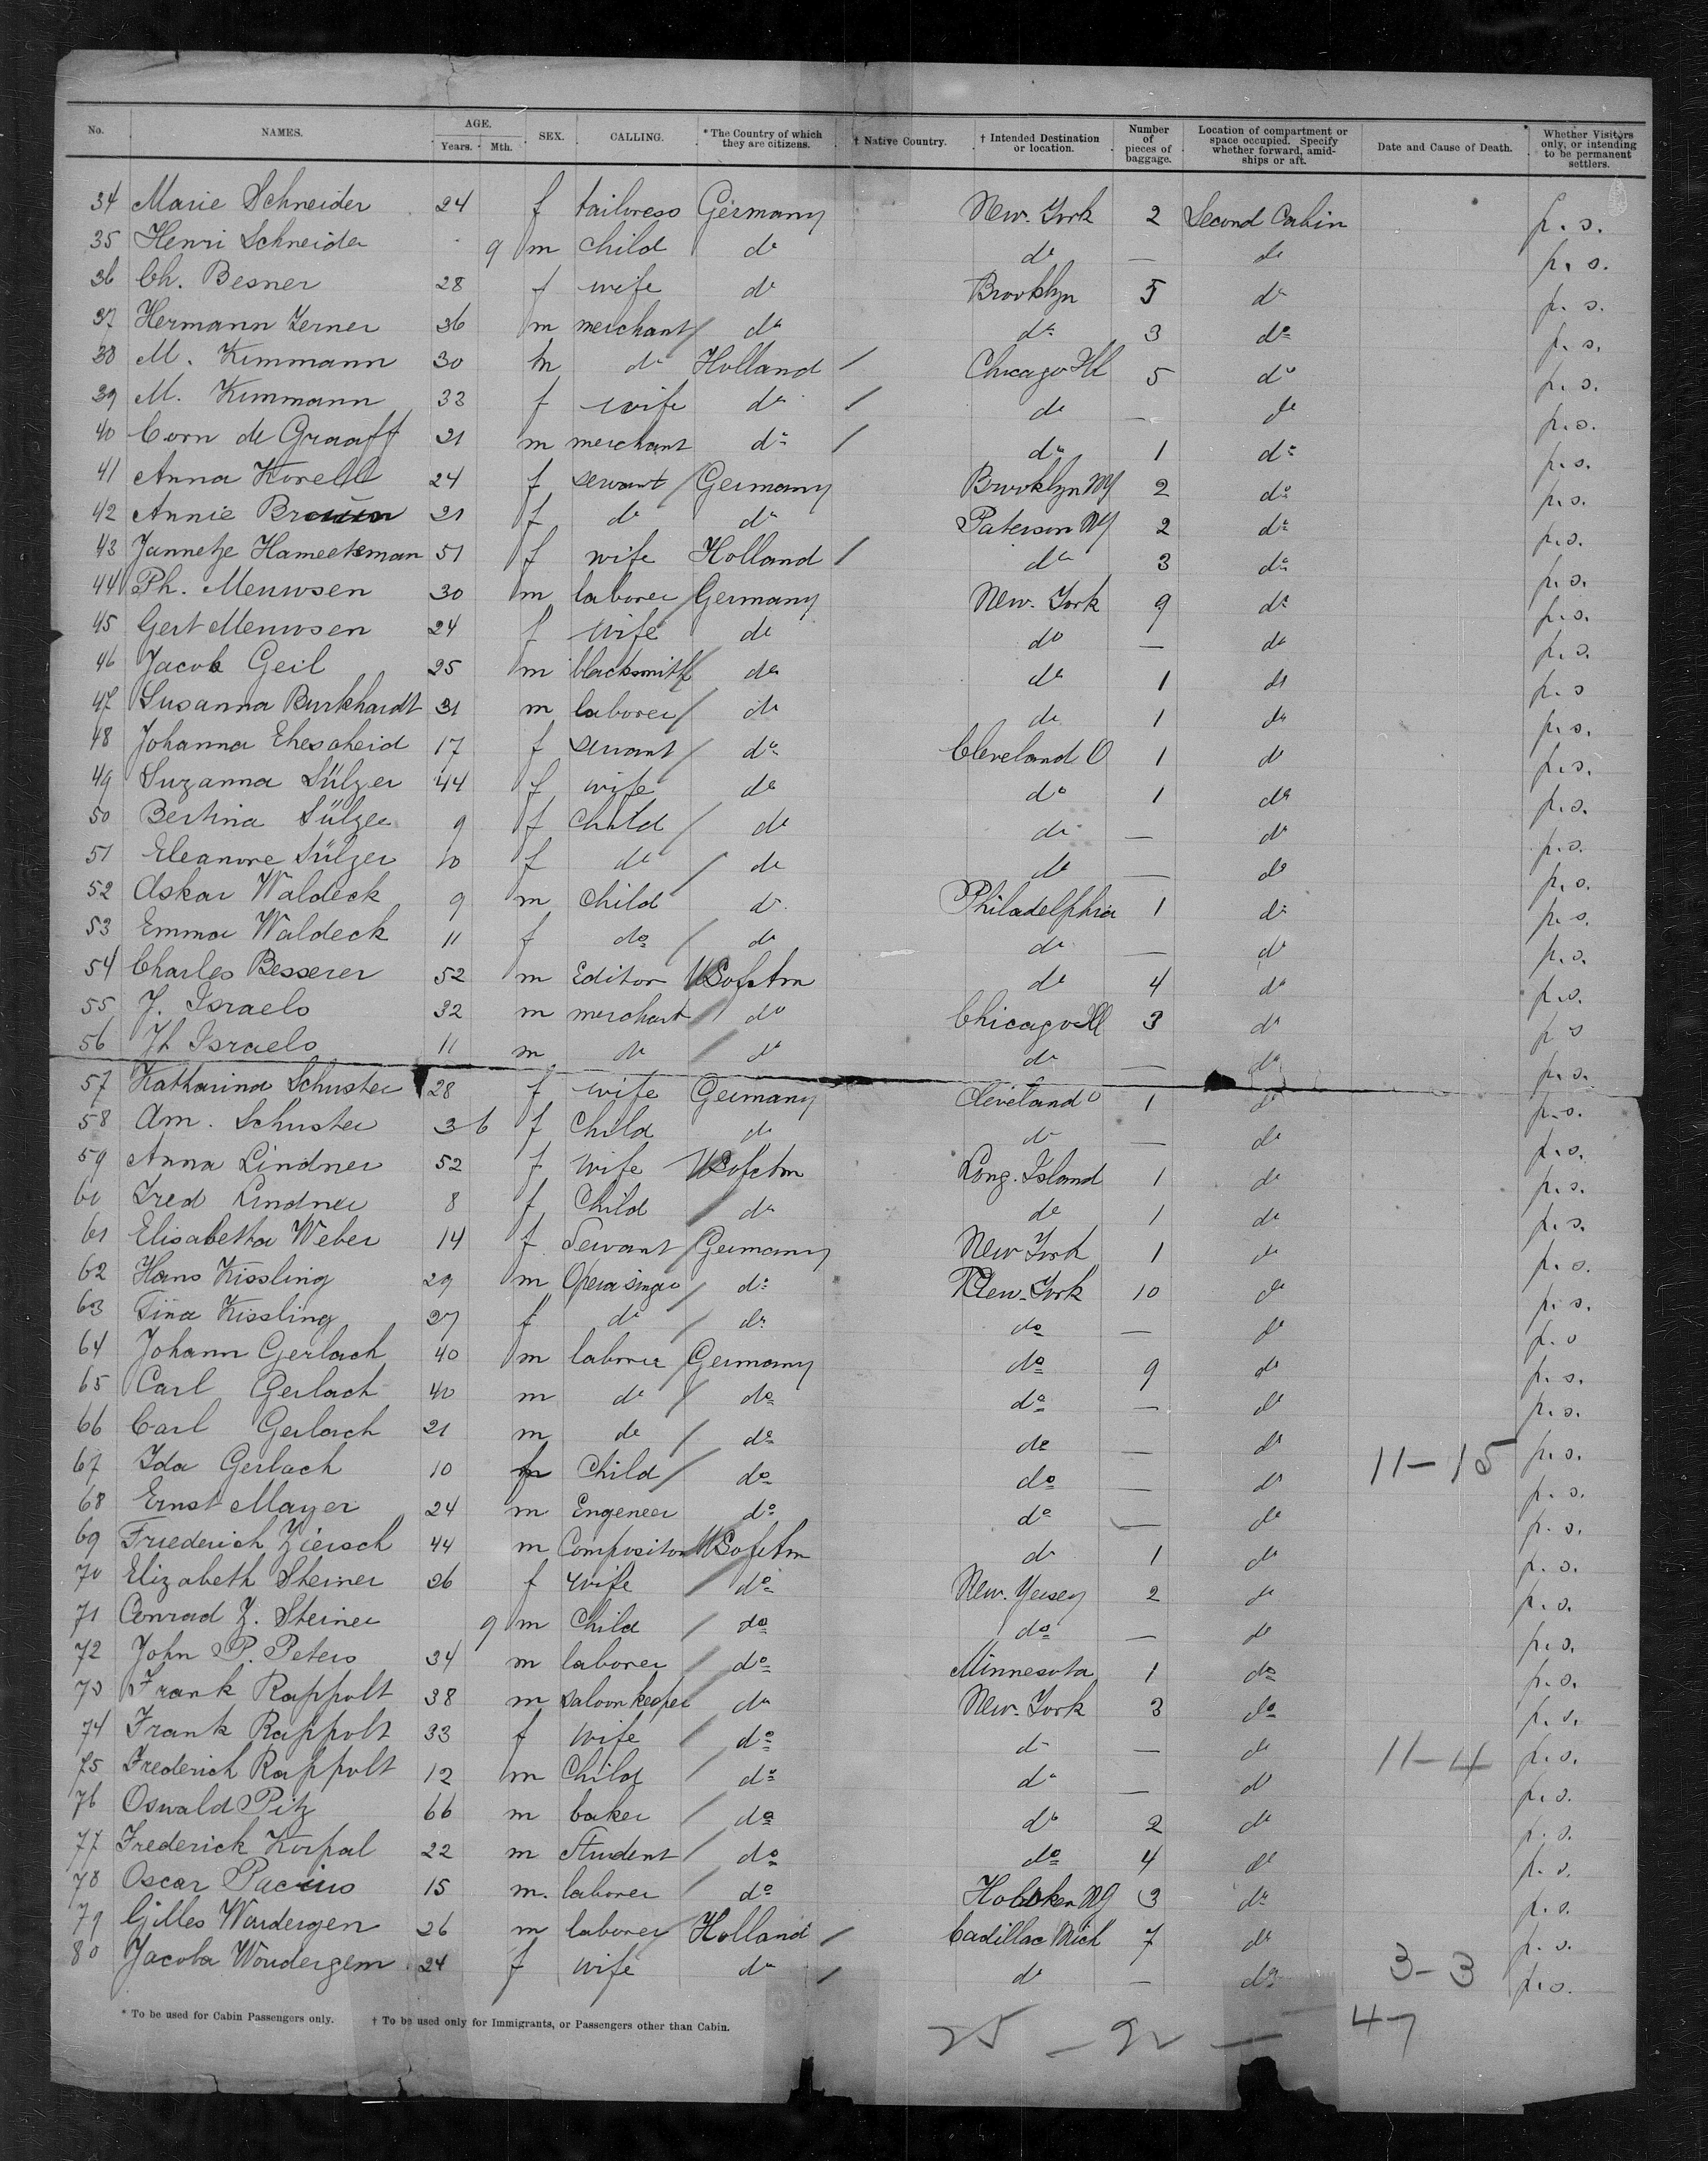 No. NAMES. AGE. Years. Mth. SEX. CALLING. * The Country of which they are citizens. † Native Country. † Intended Destination or location. Number of pieces of baggage. Location of compartment or space occupied. Specify whether forward, amidships or aft. Date and Cause of Death. Whether Visitors only, or intending to be permanent settlers.
34 Marie Schneider 24 f tailoress Germany New-York 2 Second Cabin p. s.
35 Henri Schneider 9 m child do do — do p. s.
36 Ch. Besner 28 f wife do Brooklyn 5 do p. s.
37 Hermann Zerner 36 m merchant / do do 3 do p. s.
38 M. Kimmann 30 m do Holland / Chicago Ill 5 do p. s.
39 M. Kimmann 33 f wife do / do — do p. s.
40 Corn de Graaff 21 m merchant do / do 1 do p. s.
41 Anna Korell 24 f servant / Germany Brooklyn NY 2 do p. s.
42 Annie Braun 21 f do do Paterson NJ 2 do p. s.
43 Jannetje Hameeteman 51 f wife Holland / do 3 do p. s.
44 Ph. Meuwsen 30 m laborer / Germany New-York 9 do p. s.
45 Gert Meuwsen 24 f wife do do — do p. s.
46 Jacob Geil 25 m blacksmith / do do 1 do p. s
47 Susanna Burkhardt 31 m laborer / do do 1 do p. s.
48 Johanna Ehescheid 17 f servant / do Cleveland O 1 do p. s.
49 Suzanna Sülzer 44 f wife do do 1 do p. s.
50 Bertina Sülzer 9 f child / do do — do p. s.
51 Eleanore Sülzer 10 f do / do do — do p. s.
52 Oskar Waldeck 9 m child do Philadelphia 1 do p. s.
53 Emma Waldeck 11 f do / do do — do p. s.
54 Charles Besserer 52 m Editor US of Am do 4 do p. s.
55 J. Israels 32 m merchant / do Chicago Ill 3 do p s
56 Israels 11 m do / do do — do p. s.
57 Katharina Schuster 28 f wife Germany Cleveland O 1 do p. s.
58 Am. Schuster 3 6 f Child do do — do p. s.
59 Anna Lindner 52 f wife US of Am Long. Island 1 do p. s.
60 Fred Lindner 8 f Child / do do 1 do p. s.
61 Elisabetha Weber 14 f Servant / Germany New York 1 do p. s.
62 Hans Kissling 29 m Opera singer / do New-York 10 do p. s.
63 Tina Kissling 27 f do / do do — do p. s
64 Johann Gerlach 40 m laborer / Germany do 9 do p. s.
65 Carl Gerlach 40 m do / do do — do p. s.
66 Carl Gerlach 21 m do / do do — do p. s.
67 Ida Gerlach 10 f Child / do do — do 11-15 p. s.
68 Ernst Mayer 24 m Engeneer do do — do p. s.
69 Friederich Ziersch 44 m Compositor US of Am do 1 do p. s.
70 Elizabeth Steiner 26 f wife / do New. Yersey 2 do p. s.
71 Conrad Z. Steiner 9 m Child / do do — do p. s.
72 John P. Peters 34 m laborer / do Minnesota 1 do p. s.
73 Frank Rappolt 38 m saloon keeper do New-York 3 do p. s.
74 Frank Rappolt 33 f wife / do do — do p. s.
75 Frederich Rappolt 12 m Child / do do — do 11-4 p. s.
76 Oswald Pitz 66 m baker / do do 2 do p. s.
77 Frederick Korpal 22 m Student / do do 4 do p. s.
78 Oscar 15 m. laborer / do Hoboken NJ 3 do p. s.
79 Gilles Wondergen 26 m laborer / Holland / Cadillac Mich 7 do p. s.
80 Jacoba Wondergem 24 f wife do / do — do 3-3 p. s.
* To be used for Cabin Passengers only. † To be used only for Immigrants, or Passengers other than Cabin.
47